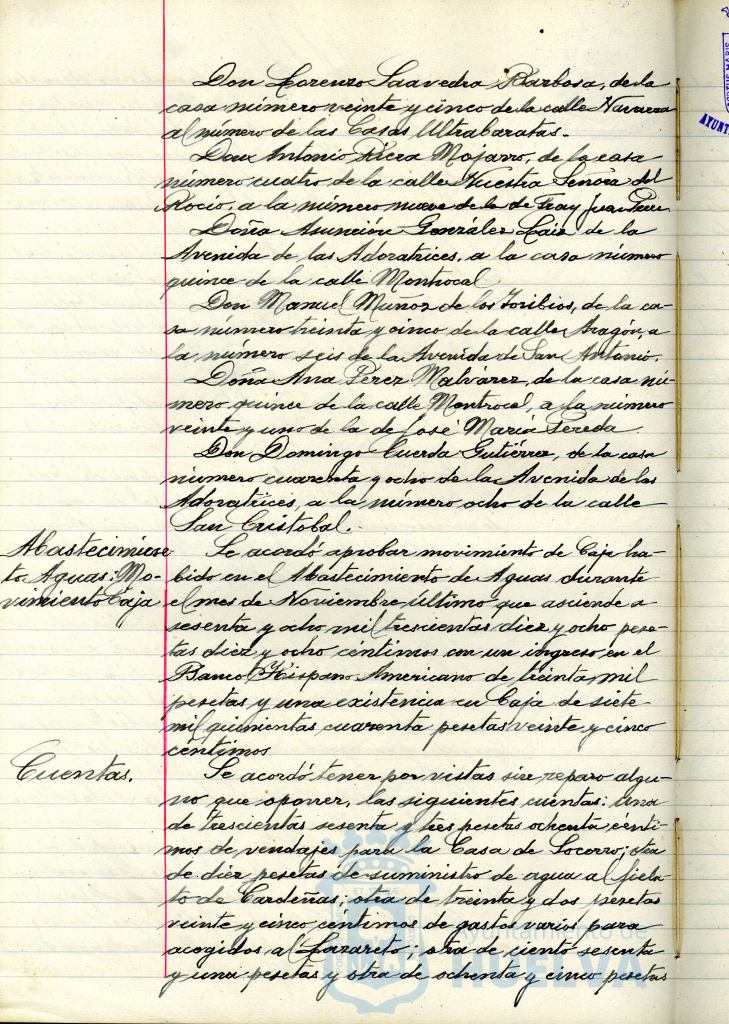 Don Lorenzo Saavedra Barbosa, de la
casa número veinte y cinco de la calle Navarra
al número de las Casas Ultrabaratas.-
Don Antonio Riera Mojarro, de la casa
número cuatro de la calle Nuestra Señora del
Rocío, a la número nueve de la de Fray Juan Pérez
Doña Asunción González Láiz de la
Avenida de las Adoratrices, a la casa número
quince de la calle Montrocal
Don Manuel Muñoz de los Toribios, de la ca-
sa número treinta y cinco de la calle Aragón, a
la número seis de la Avenida de San Antonio.
Doña Ana Pérez Malvárez, de la casa nú-
mero quince de la calle Montrocal, a la número
veinte y uno de la de José María Pereda.
Don Domingo Cuerda Gutiérrez, de la casa
número cuarenta y ocho de la Avenida de las
Adoratrices, a la número ocho de la calle
San Cristobal.-
Abastecimien-
to Aguas: Mo-
vimiento Caja
Se acordó aprobar movimiento de Caja ha-
bido en el Abastecimiento de Aguas durante
el mes de Noviembre último que asciende a
sesenta y ocho mil trescientas diez y ocho pese-
tas diez y ocho céntimos con un ingreso en el
Banco Hispano Americano de treinta mil
pesetas y una existencia en Caja de siete
mil quinientas cuarenta pesetas veinte y cinco
céntimos
Cuentas.
Se acordó tener por vistas sin reparo algu-
no que oponer, las siguientes cuentas: una
de trescientas sesenta y tres pesetas ochenta cénti-
mos de vendajes para la Casa de Socorro; otra
de diez pesetas de suministro de agua al fiela-
to de Cardeñas; otra de treinta y dos pesetas
veinte y cinco céntimos de gastos varios para
acogidos al Lazareto; otra de ciento sesenta
y una pesetas y otra de ochenta y cinco pesetas
Ayuntamiento de
HUELVA